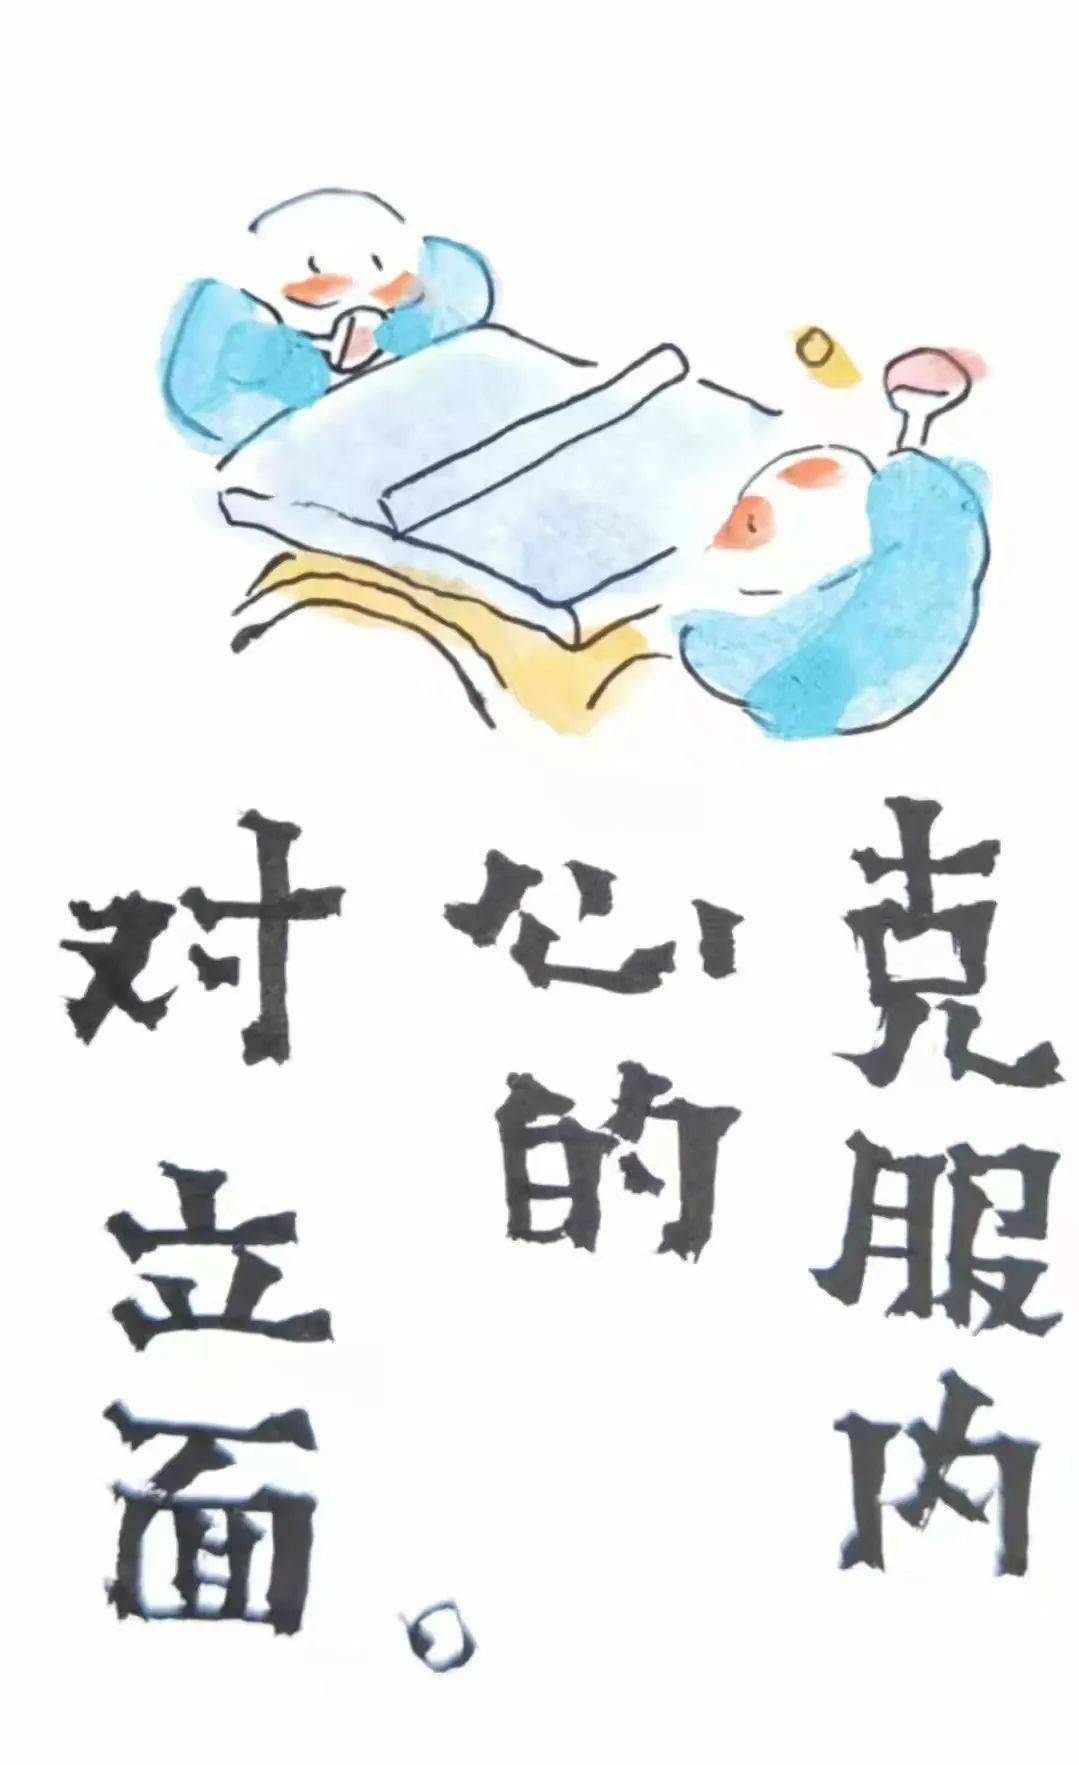 克服内
心的
对立面。